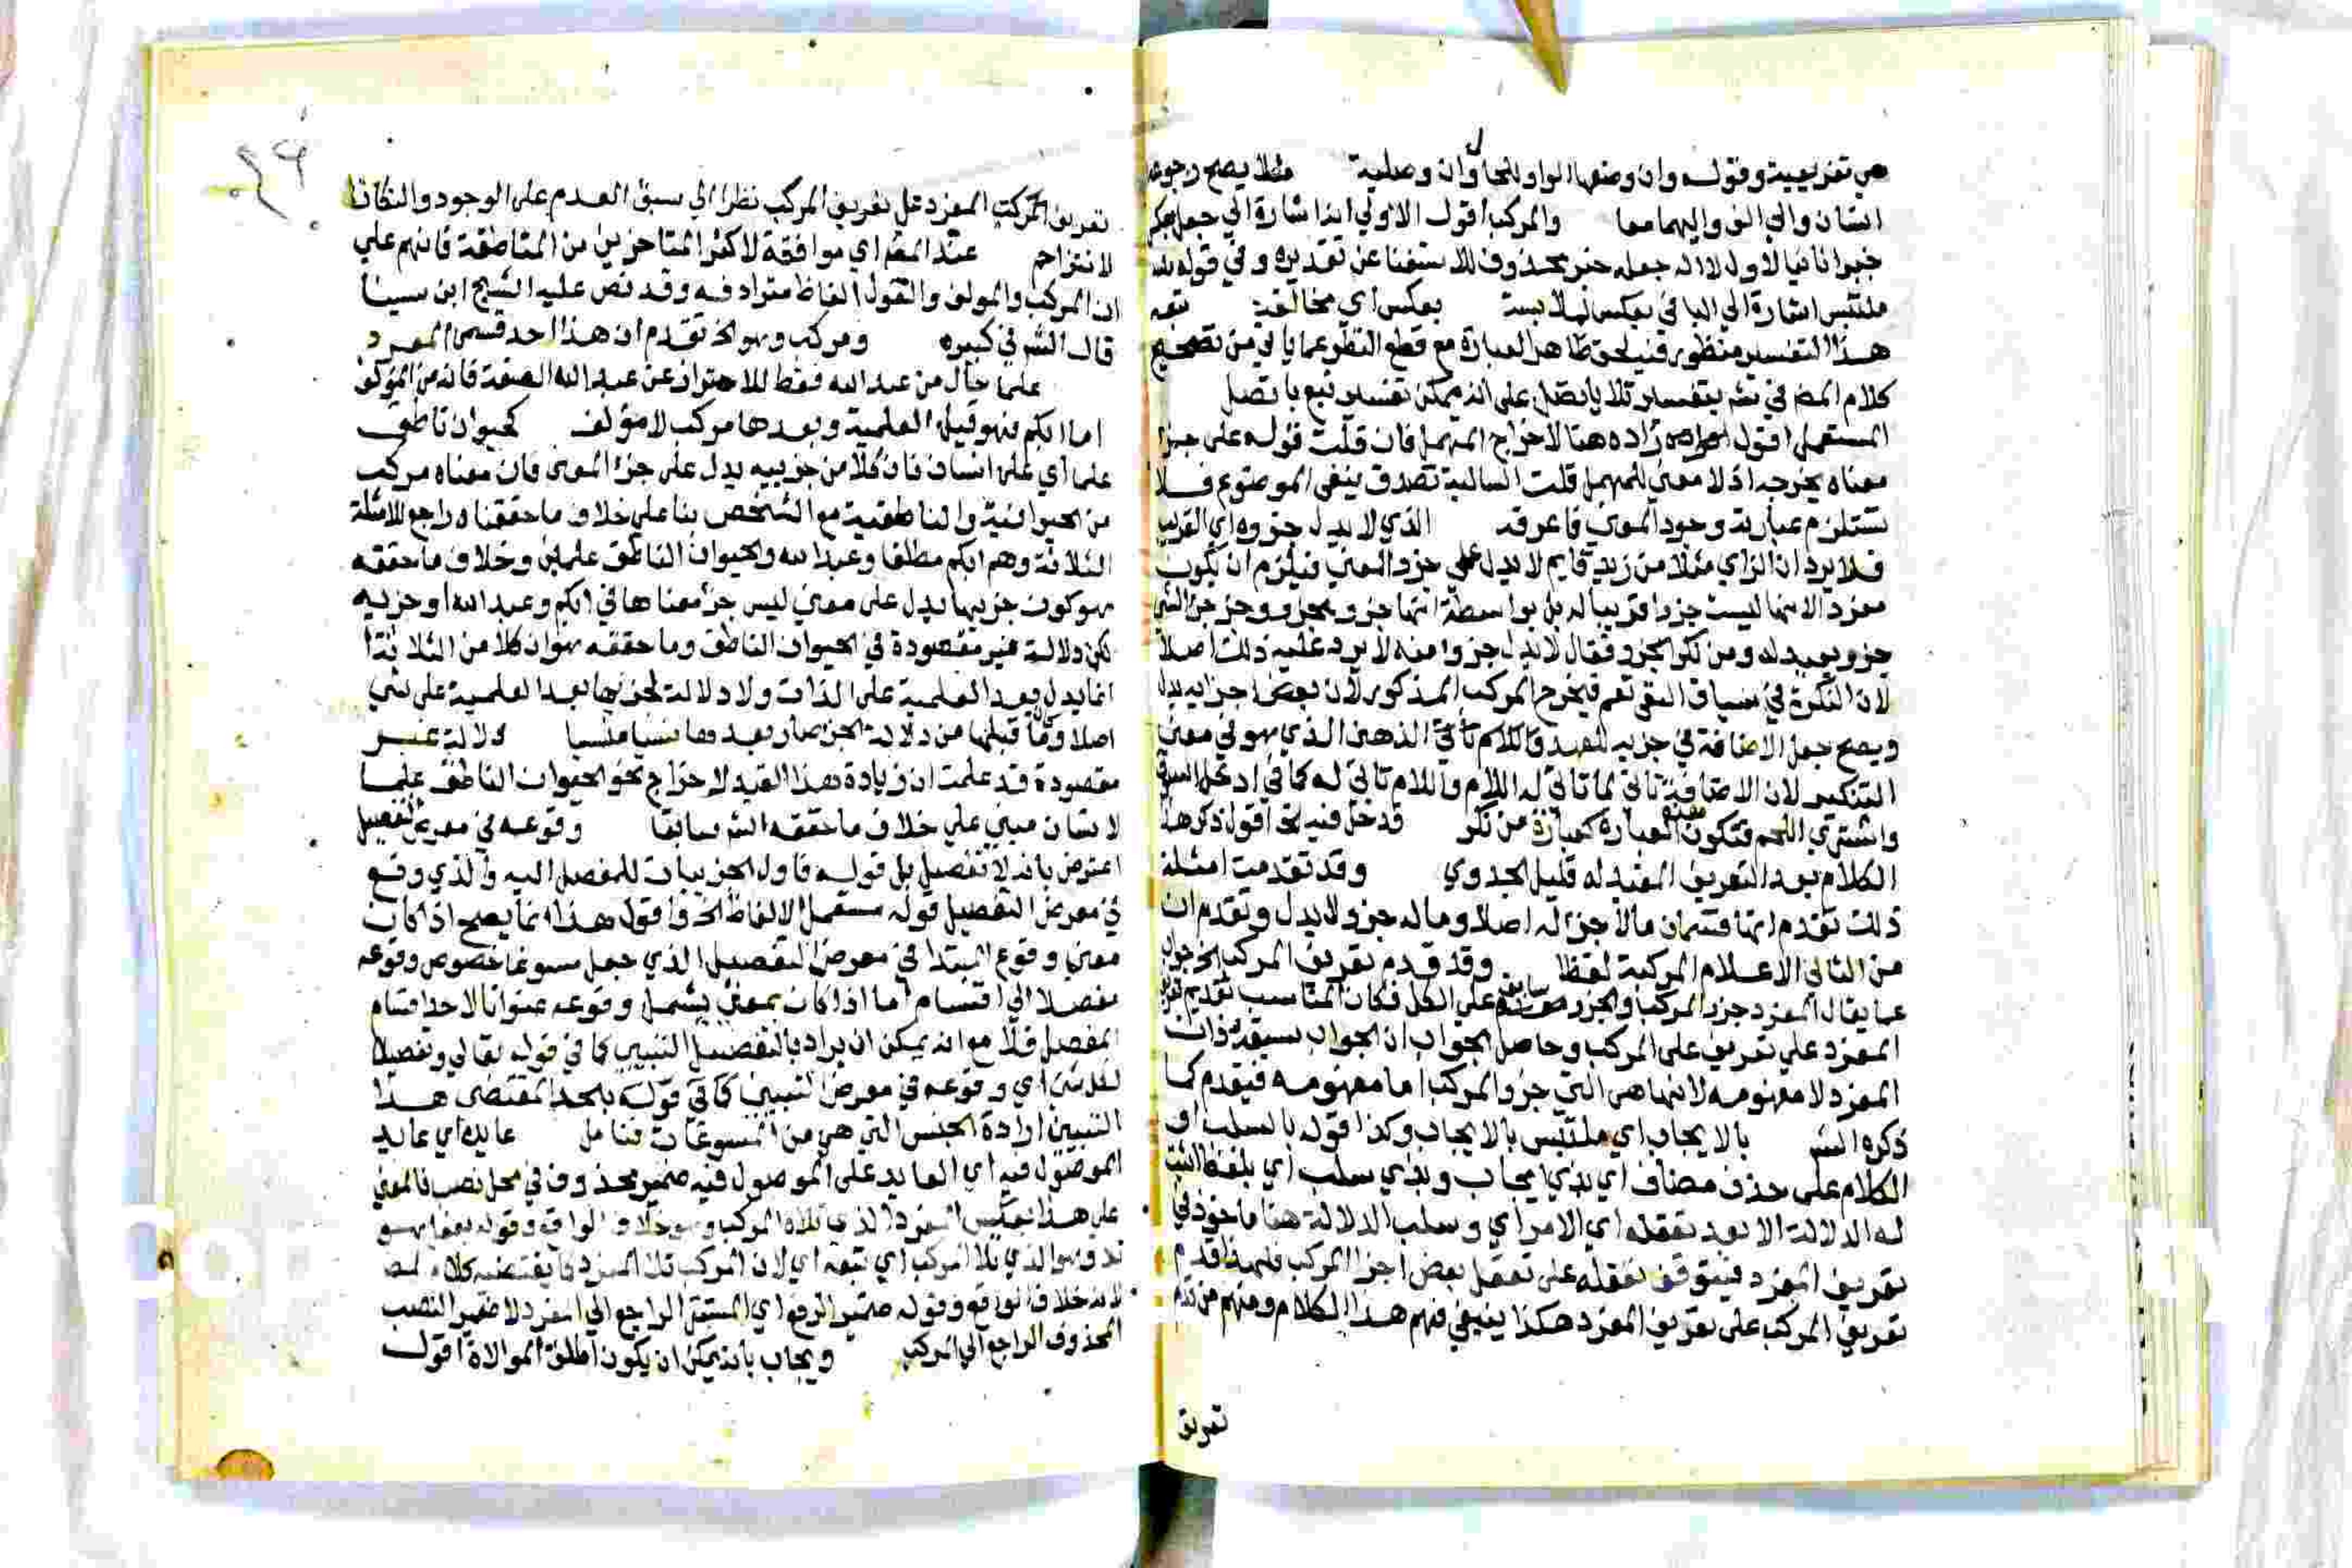 هي تفريعية وقوله وان وضعها الواو للحال وان وصلية مثلا يصح رجوعه
الشان والي الف واليهما معا والمركب اقول الاولي ان اشارة الي جعل
خبرا ثانيا لاول لا انه جعله خبر محذوف للاستغنا عن تقديره وفي قوله
ملتبس اشارة الي البا في بعكس للملابسة بعكس اي مخالفة تبعه
هذا التفسير منظور فيه لحق ظاهر العبارة مع قطع النظر عما ياتي من تصحيح
كلام المص في تفسير تلا باتصل على انه يمكن تفسير تبع باتصل
المستعمل اقول زاده هنا لاخراج المهمل فان قلت قوله على جزء
معناه يخرجه اذ لا معني للمهمل قلت السالبة تصدق بنفي الموضوع فلا
تستلزم عبارته وجود المعني فاعرفه الذي لا يدل جزوه اي القريب
فلا يرد ان الزاي مثلا من زيد قايم لا يدل على جزء المعني فيلزم ان يكون
مفردا لانها ليست جزءا قريبا له بل بواسطة انها جزو وجزء جزء الشي
جزو بعيد له ومن نكر الجزء فقال لا يدل جزوا منه لا يرد عليه ذلك اصلا
لان النكرة في سياق النفي تعم فيخرج المركب المذكور لان بعض اجزايه يدل
ويصح جعل الاضافة في جزيه للعهد الذهني الذي هو في معني
التنكير لان الاضافة تاتي لما تاتي له اللام واللام تاتي له كما في ادخل السوق
واشتري اللحم فتكون العبارة كعبارة من نكر قد دخل فيه الخ اقول ذكر هذا
الكلام بعد التعريف المفيد له قليل الجدوي وقد تقدمت امثلة
ذلك تقدم انها قسمان ما لا جزء له اصلا وما له جزو لا يدل وتقدم ان
من الثاني الاعلام المركبة لفظا وقد قدم تعريف المركب الخ جواب
عما يقال المفرد جزء المركب والجزء سابق على الكل فكان المناسب تقديم تعريف
المفرد على تعريف المركب وحاصل الجواب ان الجواب بسبقه ذات
المفرد لا مفهومه لانها هي التي جزو المركب اما مفهومه فيقدم كما
ذكره الش بالايجاب اي ملتبس بالايجاب وكذا قوله بالسلب او
الكلام على حذف مضاف اي بذي ايجاب وبذي سلب اي بلفظ اثبت
له الدلالة الا بعد تعقله اي الامر اي وسلب الدلالة هنا ماخوذ في
تعريف المفرد فيتوقف تعقله على تعقل بعض اجزا المركب فلهذا قدم
تعريف المركب على تعريف المفرد هكذا ينبغي فهم هذا الكلام ومنهم من قدم
تعريف
٢٦
تعريف المفرد على تعريف المركب نظرا الي سبق العدم على الوجود والنكات
لا تتزاحم عند المص اي موافقة لاكثر المتاخرين من المناطقة فانهم علي
ان المركب والمولف والقول الفاظ مترادفة وقد نص عليه الشيخ ابن سينا
قال الش في كبيره ومركب وهو الخ تقدم ان هذا احد قسمي المفرد
علما حال من عبد الله فقط للاحتراز عن عبد الله الصفة فانه من المؤلف
اما ابكم فهو قبل العلمية وبعدها مركب لا مؤلف كحيوان ناطق
علما اي على انسان فان كلا من جزييه يدل على جزء المعنى فان معناه مركب
من الحيوانية والناطقية مع التشخص بنا علي خلاف ما حققناه راجع للامثلة
الثلاثة وهم ابكم مطلقا وعبد الله والحيوان الناطق علمين وخلاف ما حققه
هو كون جزيها يدل على معني ليس جزء معناها في ابكم وعبد الله او جزيه
لكن دلالة غير مقصودة في الحيوان الناطق وما حققه هو ان كلا من الثلاثة
انما يدل بعد العلمية على الذات ولا دلالة لجزيها بعد العلمية على شي
اصلا وما قبلها من دلالة الجز صار بعدها نسيا منسيا دلالة غير
مقصودة قد علمت ان زيادة هذا القيد لاخراج نحو الحيوان الناطق علما
لانسان مبني علي خلاف ما حققه الش سابقا وقوعه في معرض التفصيل
اعترض بانه لا تفصيل بل قوله فاول الخ بيان للمفصل اليه والذي وقع
في معرض التفصيل قوله مستعمل الالفاظ الخ واقول هذا انما يصح اذا كان
معني وقوع المبتدا في معرض التفصيل الذي جعل مسوغا خصوص وقوعه
مفصلا الي اقسام اما اذا كان بمعني يشمل وقوعه عنوانا لاحد اقسام
المفصل فلا مع انه يمكن ان يراد بالتفصيل التبيين كما في قوله تعالي وتفصيلا
لكل شي اي وقوعه في معرض التبيين كما في المقتضى هذا
التبيين ارادة الجنس التي هي من المسوغات فتامل عايد اي عايد
الموصول فيه اي العايد على الموصول فيه ضمير محذوف في محل نصب فالمعني
على هذا بعكس المفرد الذي تلاه المركب وهو خلاف الواقع وقوله
وهو الذي تلا المركب اي تبعه اي لان المركب تلا المفرد كما يقتضيه كلام المص
لانه خلاف الواقع وقوله ضمير الرفع اي المستتر الراجع الي المفرد لا ضمير النصب
المحذوف الراجع الي المركب ويجاب بانه يمكن ان يكون اطلق الموالاة اقول